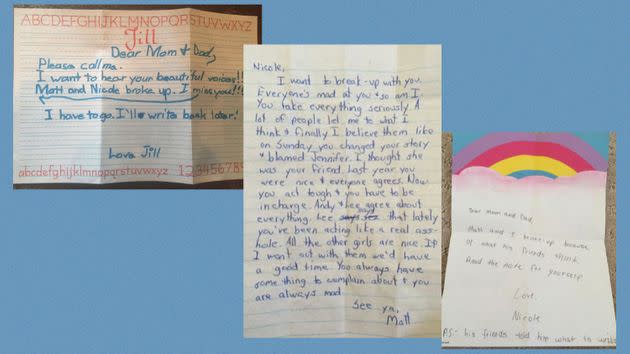 ABCDEFGHIJKLMNOPQRSTUVWXYZ
Jill
Dear Mom & Dad,
Please call me.
I want to hear your beautiful voices!!
Matt and Nicole broke up. I miss you!!!
I have to go. I'll write back later!
Love Jill
abcdefghijklmnopqrstuvwxyz 123456789
Nicole,
I want to break-up with you.
Everyone's mad at you & so am I.
You take everything seriously. A
lot of people led me to what I
think & finally I believe them like
on Sunday you changed your story
& blamed Jennifer. I thought she
was your friend. Last year you
were nice & everyone agrees. Now
you act tough & you have to be
in charge. Andy & Lee agree about
everything. Lee said that lately
you've been acting like a real ass-
hole. All the other girls are nice. If
I went out with them we'd have
a good time. You always have
something to complain about & you
are always mad.
See ya,
Matt
Dear Mom and Dad,
Matt and I broke-up because
of what his friends think.
Read the note for yourself.
Love,
Nicole
P.S.- his friends told him what to write